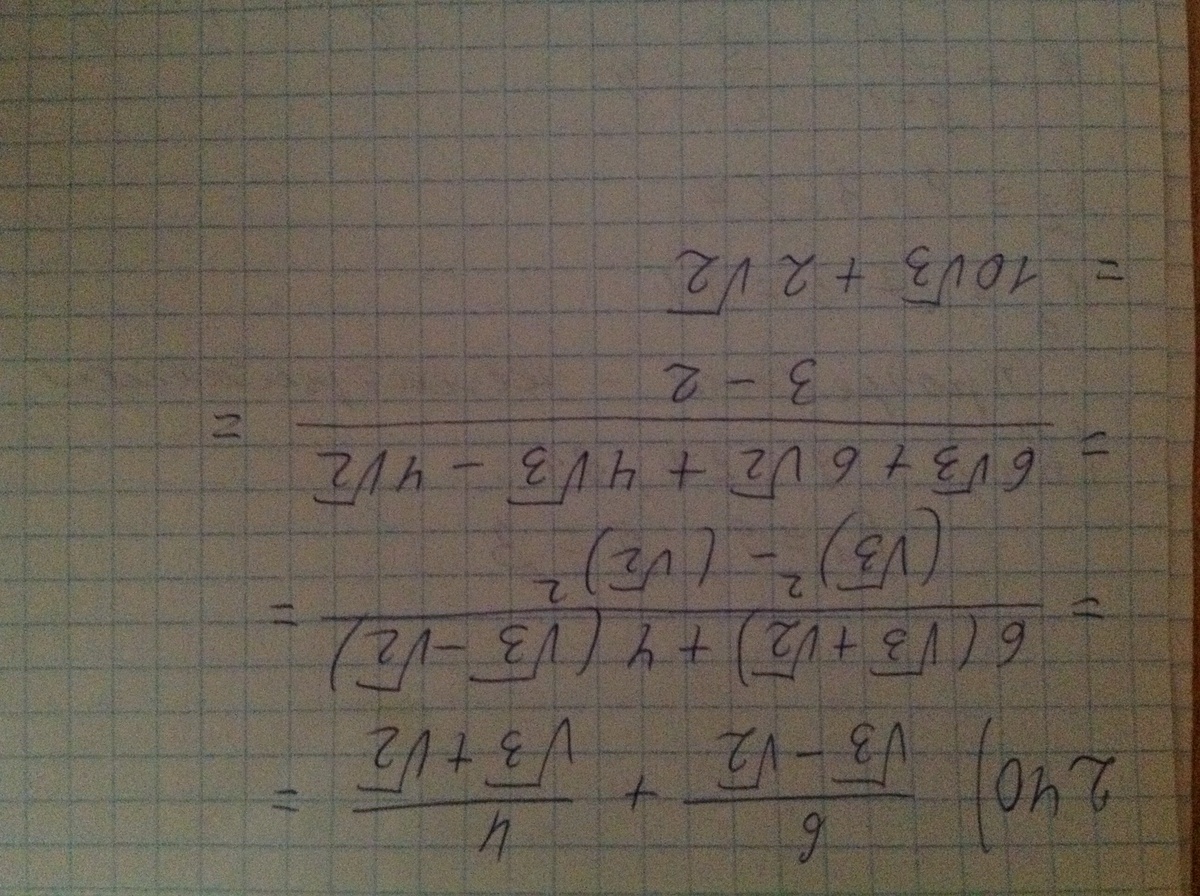 240) 6/(√3-√2) + 4/(√3+√2) =
= (6(√3+√2)+4(√3-√2))/((√3)²-(√2)²) =
= (6√3+6√2+4√3-4√2)/(3-2) =
= 10√3+2√2